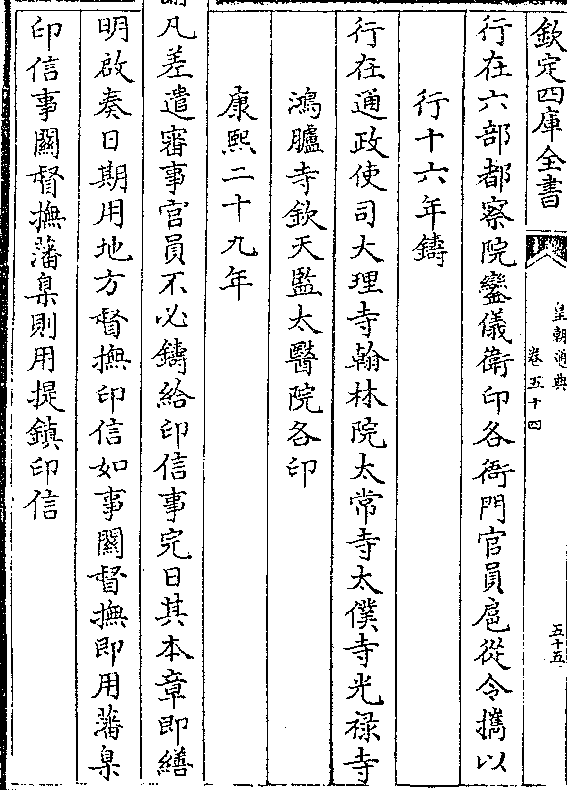 欽定四庫全書
皇朝通典
卷五十四
五十五
行在六部都察院鑾儀衛印各衙門官員扈從令攜以
行十六年鑄
行在通政使司大理寺翰林院太常寺太僕寺光祿寺
鴻臚寺欽天監太醫院各印
康熙二十九年
凡差遣審事官員不必鑄給印信事完日其本章即繕
明啟奏日期用地方督撫印信如事關督撫即用藩臬
印信事關督撫藩臬則用提鎮印信